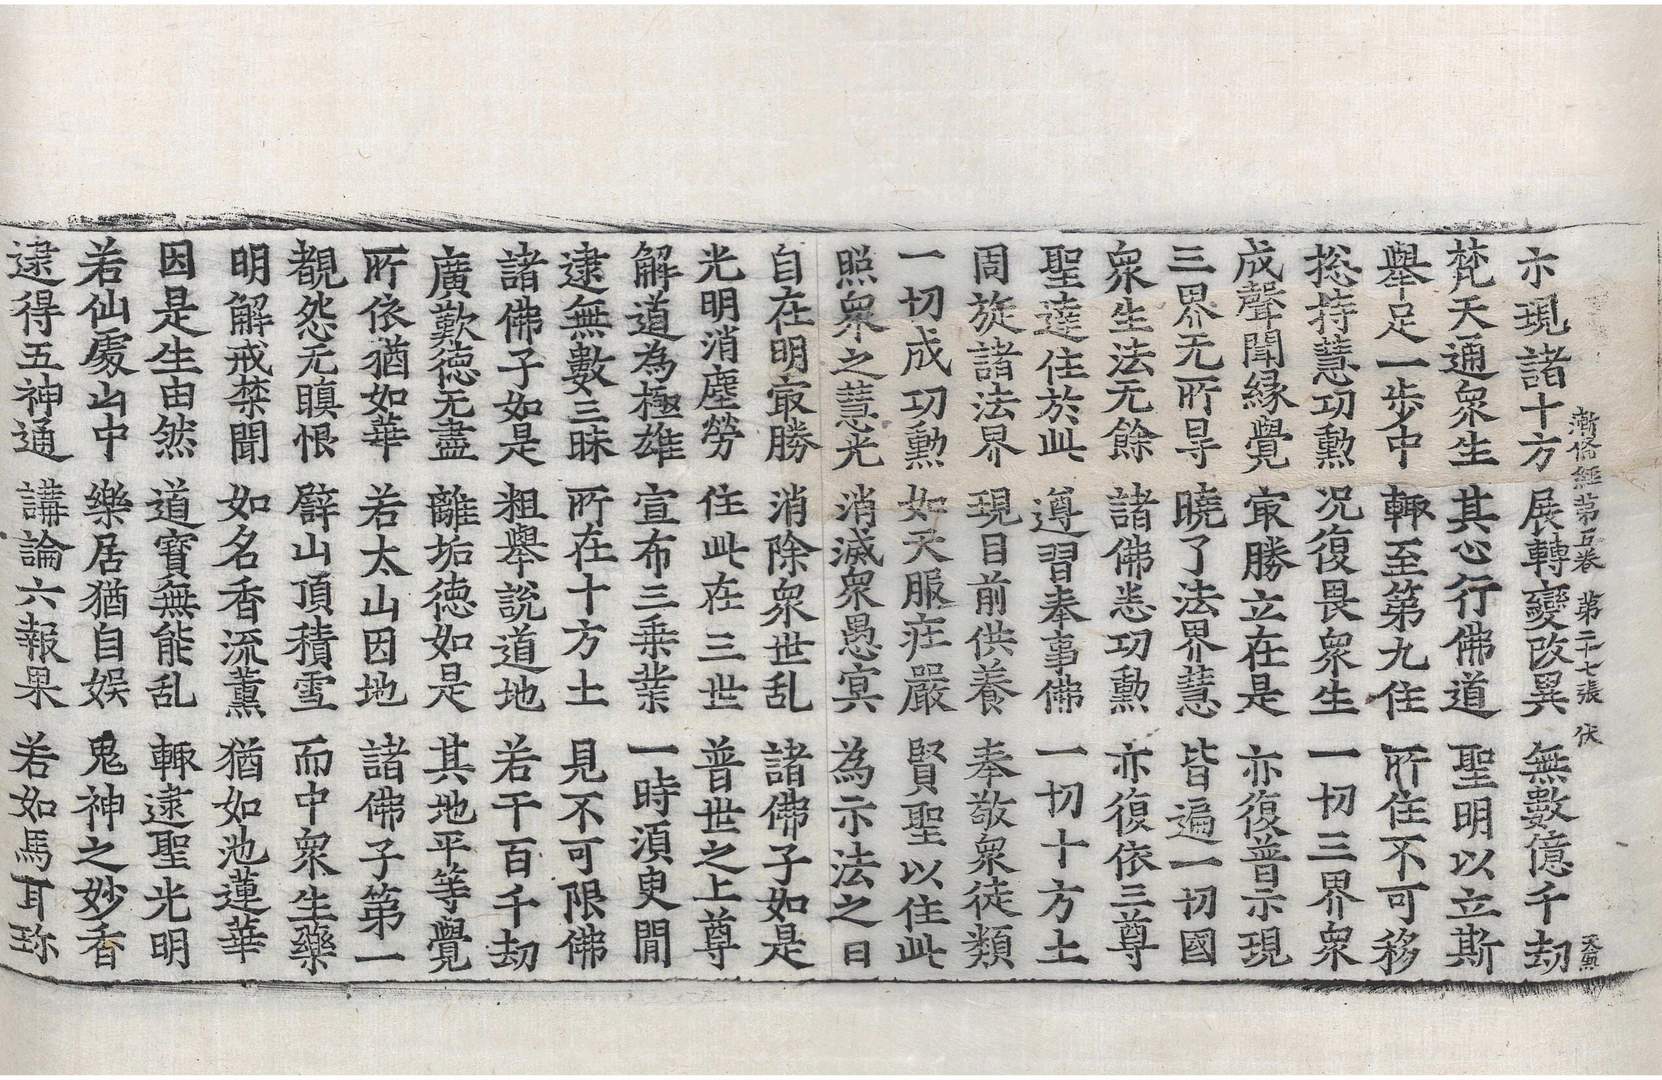 漸俻經第五卷　第二十七張　伏
示現諸十方　展轉變改異　無數億千劫
梵天通眾生　其心行佛道　聖明以立斯
舉足一步中　輙至第九住　所住不可移
捴持慧功勲　况復畏眾生　一切三界眾
成聲聞縁覺　㝡勝立在是　亦復普示現
三界无所㝵　曉了法界慧　皆遍一切國
眾生法无餘　諸佛恙功勲　亦復依三尊
聖達住於此　遵習奉事佛　一切十方土
周旋諸法界　現目前供養　奉敬眾徒類
一切成功勲　如天服莊嚴　賢聖以住此
照眾之慧光　消滅眾愚㝠　為示法之日
自在明㝡勝　消除眾世乱　諸佛子如是
光明消塵勞　住此在三世　普世之上尊
解道為極雄　宣布三乗業　一時湏臾閒
逮無數三昧　所在十方土　見不可限佛
諸佛子如是　粗舉說道地　若干百千劫
廣歎徳无盡　離垢徳如是　其地平等覺
所依猶如華　若太山因地　諸佛子第一
覩怨无瞋恨　劈山頂積雪　而中眾生藥
明解戒禁聞　如名香流薫　猶如池蓮華
因是生由然　道寳無能乱　輙逮聖光明
若仙處山中　樂居猶自娱　鬼神之妙香
逮得五神通　講論六報果　若如馬耳珎